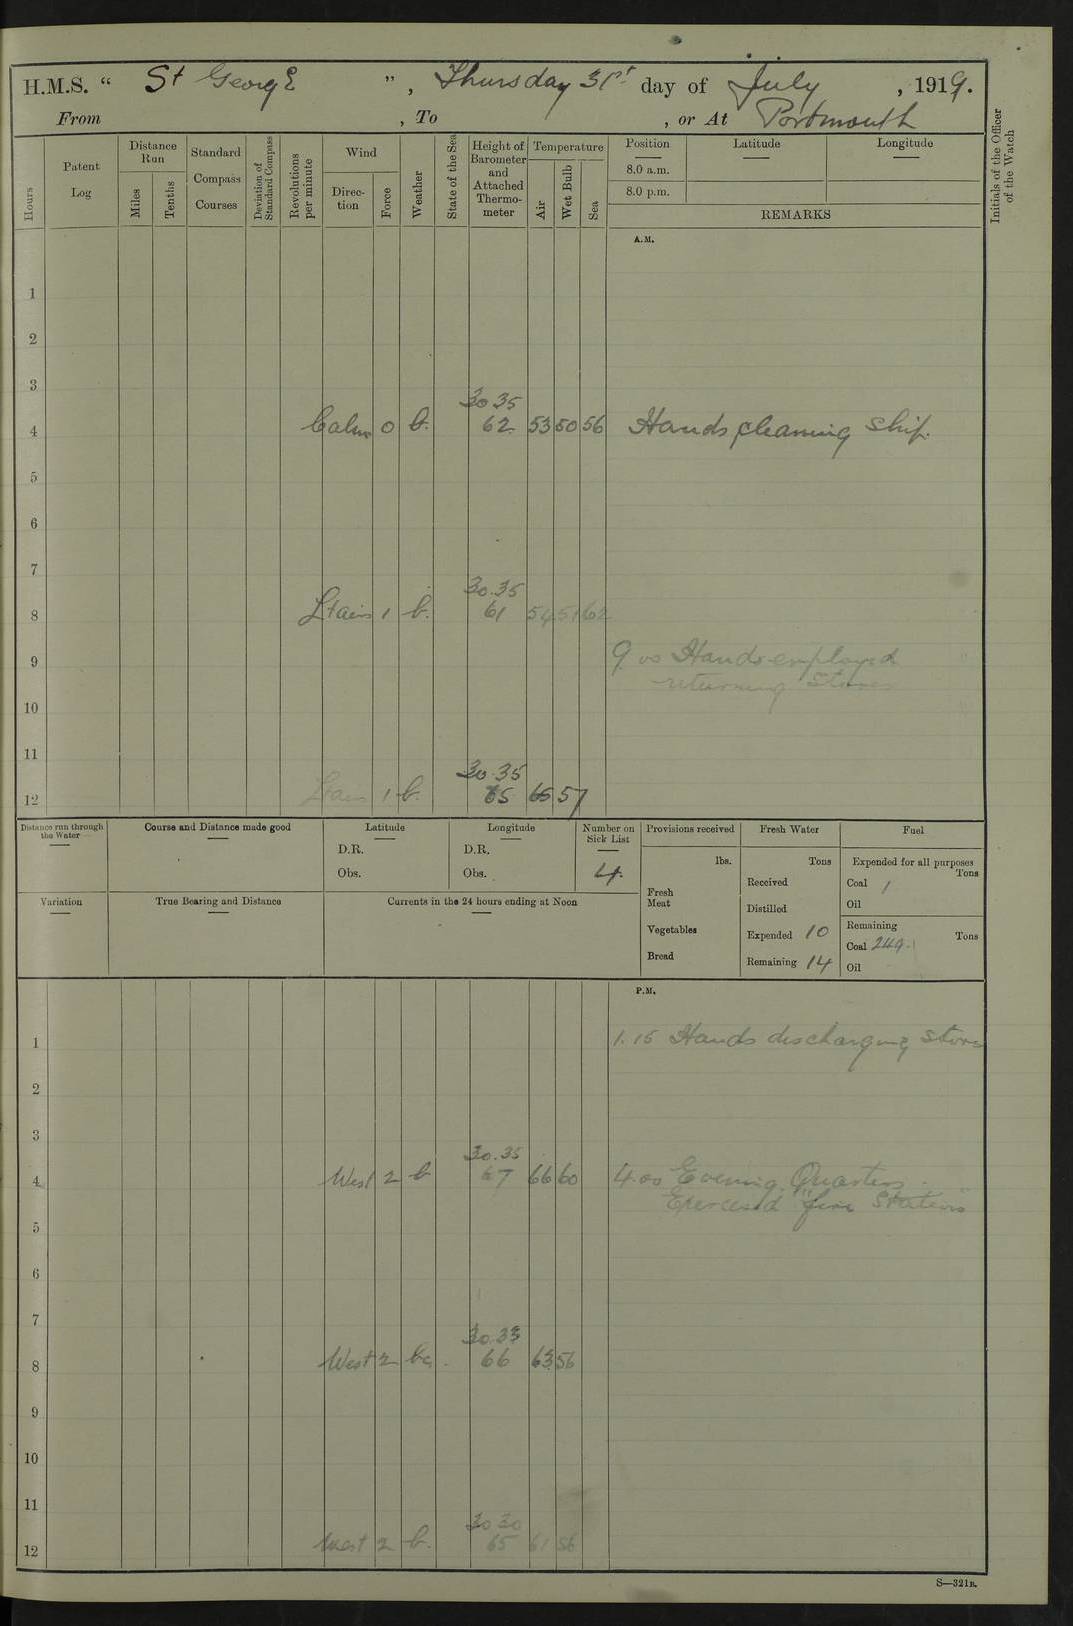 H.M.S. “ St George ” , Thursday 31st day of July , 1919.
From , To , or At Portsmouth
Hours
Patent Log
Distance Run
Miles
Tenths
Standard Compass Courses
Deviation of Standard Compass
Revolutions per minute
Wind
Direction
Force
Weather
State of the Sea
Height of Barometer and Attached Thermometer
Temperature
Air
Wet Bulb
Sea
Position
8.0 a.m.
8.0 p.m.
Latitude
Longitude
REMARKS
Initials of the Officer of the Watch
A.M.
1
2
3
30 35
4 Calm 0 b. 62 53 50 56 Hands cleaning ship.
5
6
7
30.35
8 Ltairs 1 b. 61 54 51 62
9 9.00 Hands employed
returning stores
10
11
30.35
12 Ltairs 1 b. 65 65 57
Distance run through the Water
Course and Distance made good
Latitude
D.R.
Obs.
Longitude
D.R.
Obs.
Number on Sick List
4.
Provisions received
lbs.
Fresh Meat
Vegetables
Bread
Fresh Water
Tons
Received
Distilled
Expended 10
Remaining 14
Fuel
Expended for all purposes
Tons
Coal 1
Oil
Remaining
Tons
Coal 249.
Oil
Variation
True Bearing and Distance
Currents in the 24 hours ending at Noon
P.M.
1 1.15 Hands discharging stores
2
3
30.35
4 West 2 b 67 66 60 4.00 Evening Quarters.
Exercised "fire Stations"
5
6
7
30.33
8 West 2 bc. 66 63 56
9
10
11
30 30
12 West 2 b. 65 61 56
S—321B.